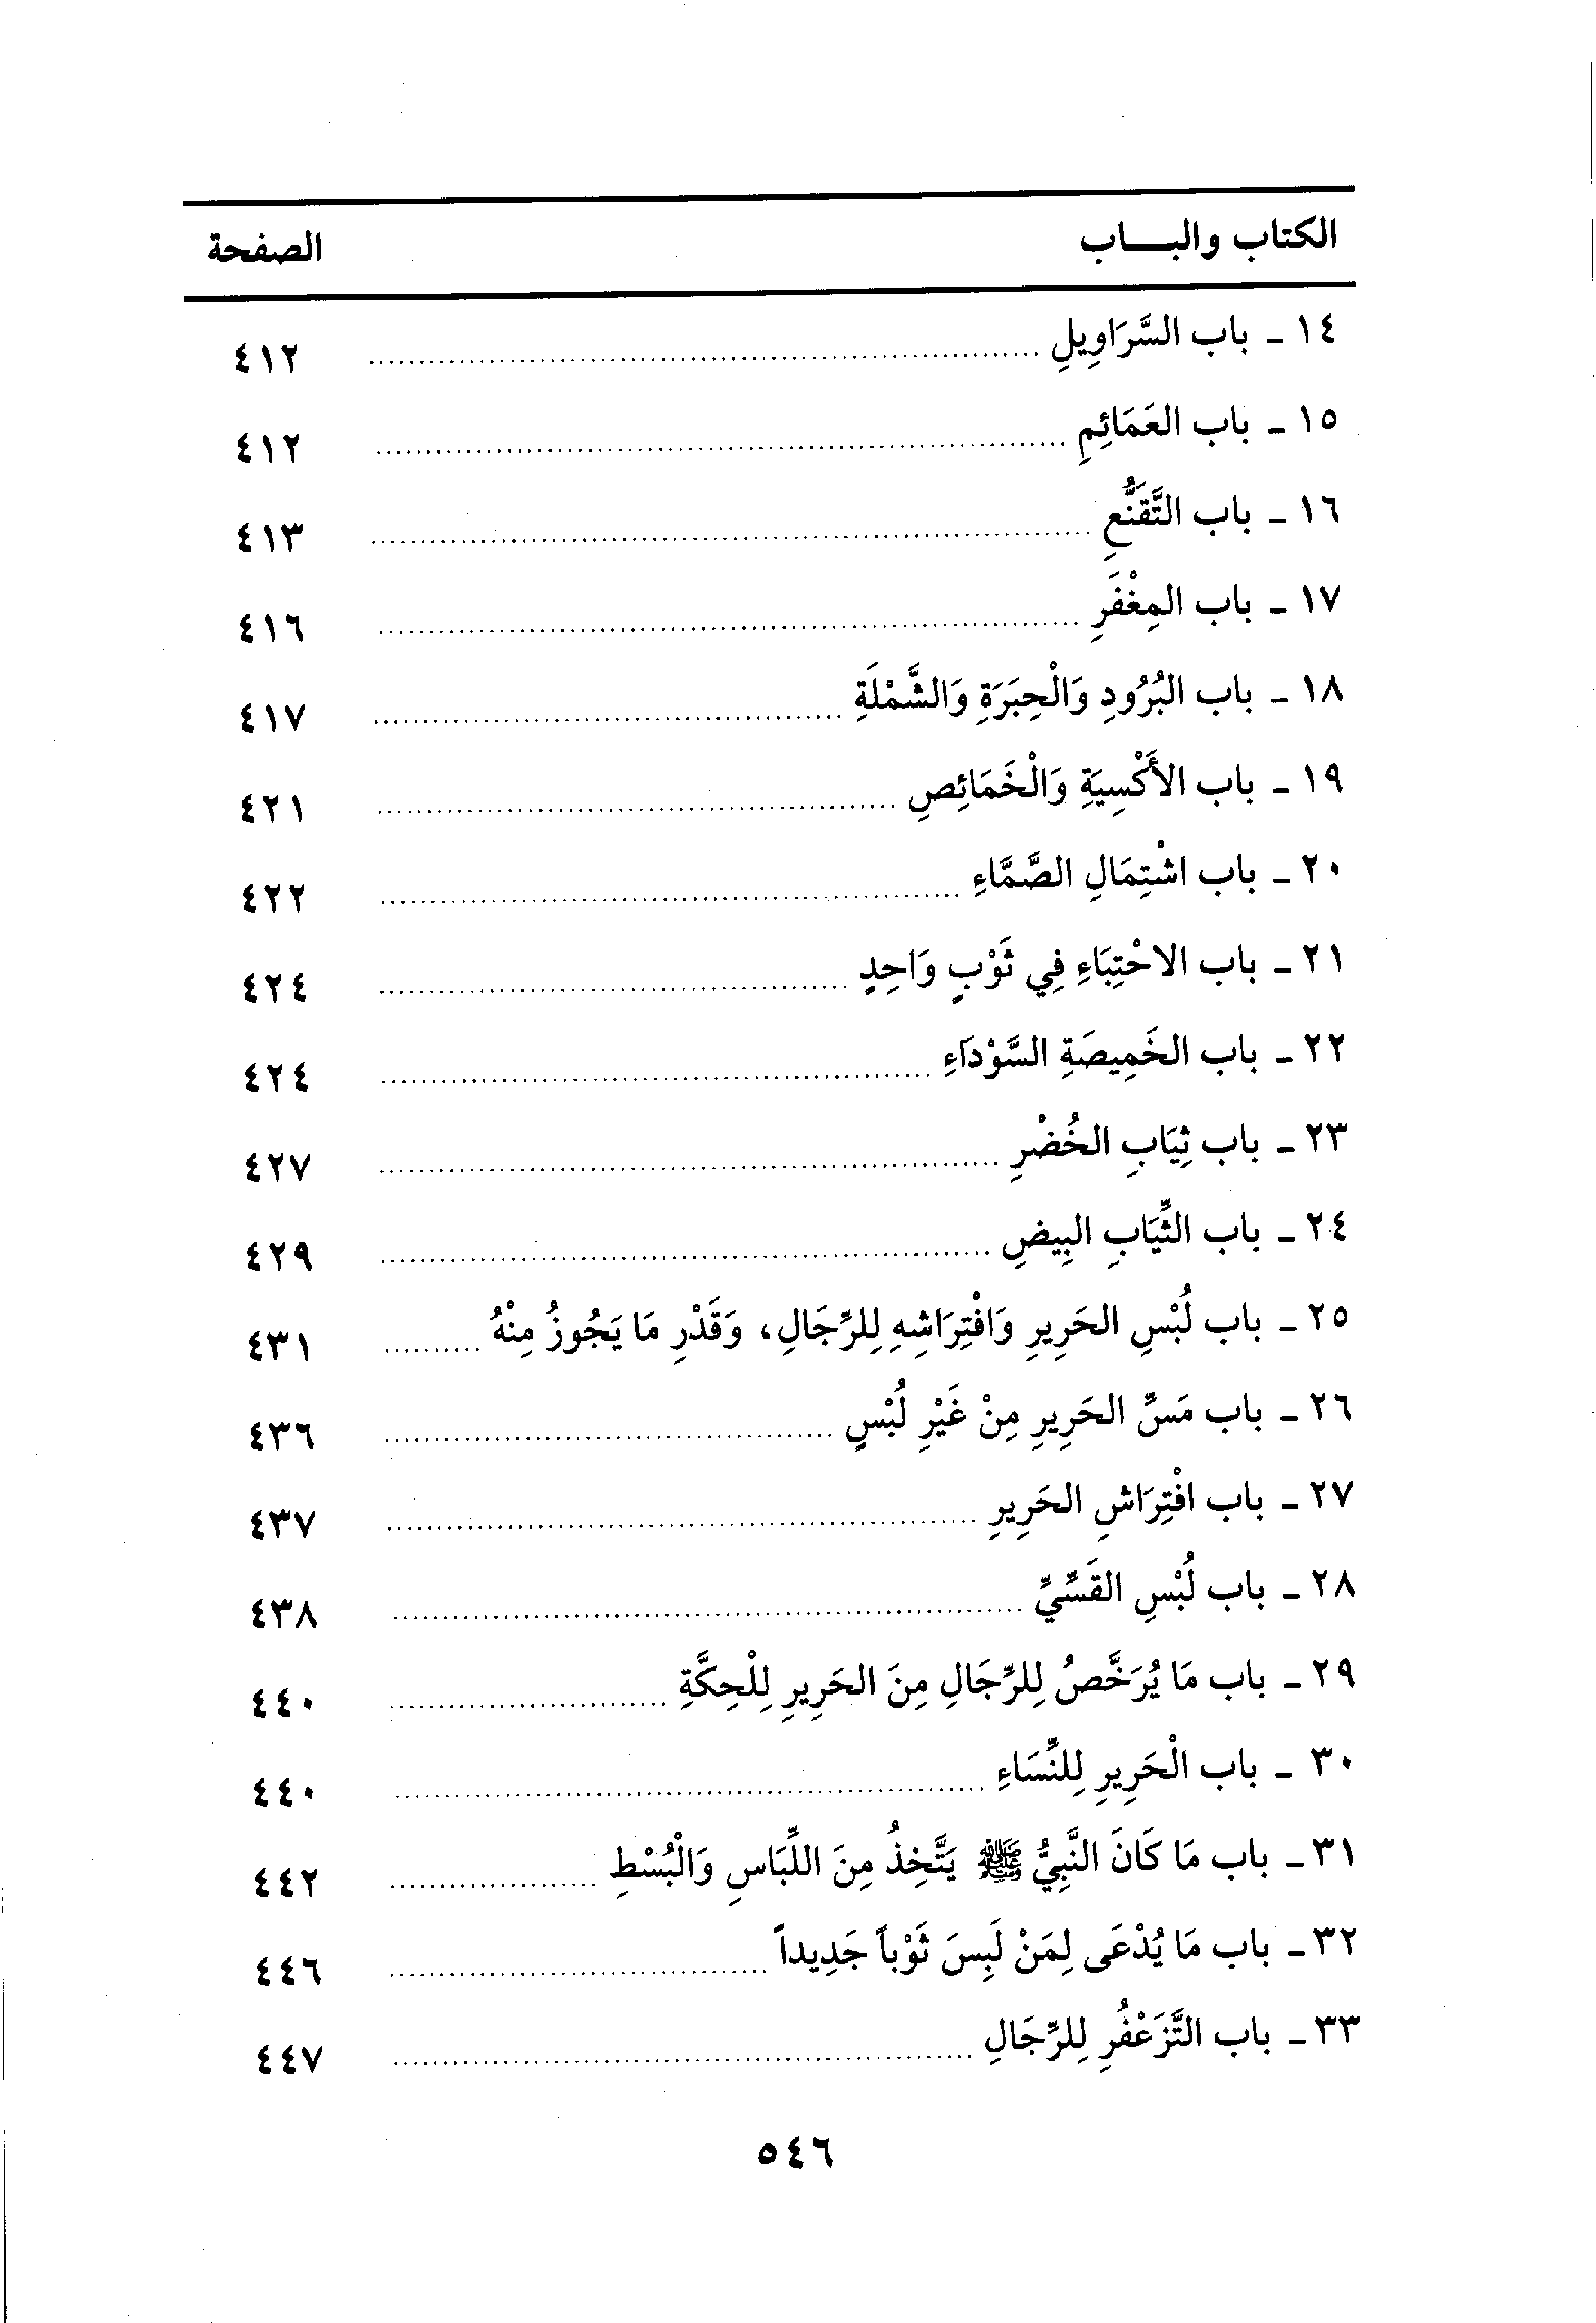 الكتاب والبـــاب الصفحة
١٤ - باب السَّرَاوِيلِ ٤١٢
١٥ - باب العَمَائِمِ ٤١٢
١٦ - باب التَّقَنُّعِ ٤١٣
١٧ - باب المِغْفَرِ ٤١٦
١٨ - باب البُرُودِ وَالْحِبَرَةِ وَالشَّمْلَةِ ٤١٧
١٩ - باب الأَكْسِيَةِ وَالْخَمَائِصِ ٤٢١
٢٠ - باب اشْتِمَالِ الصَّمَّاءِ ٤٢٢
٢١ - باب الاحْتِبَاءِ فِي ثَوْبٍ وَاحِدٍ ٤٢٤
٢٢ - باب الخَمِيصَةِ السَّوْدَاءِ ٤٢٤
٢٣ - باب ثِيَابِ الخُضْرِ ٤٢٧
٢٤ - باب الثِّيَابِ البِيضِ ٤٢٩
٢٥ - باب لُبْسِ الحَرِيرِ وَافْتِرَاشِهِ لِلرِّجَالِ، وَقَدْرِ مَا يَجُوزُ مِنْهُ ٤٣١
٢٦ - باب مَسِّ الحَرِيرِ مِنْ غَيْرِ لُبْسٍ ٤٣٦
٢٧ - باب افْتِرَاشِ الحَرِيرِ ٤٣٧
٢٨ - باب لُبْسِ القَسِّيِّ ٤٣٨
٢٩ - باب مَا يُرَخَّصُ لِلرِّجَالِ مِنَ الحَرِيرِ لِلْحِكَّةِ ٤٤٠
٣٠ - باب الْحَرِيرِ لِلنِّسَاءِ ٤٤٠
٣١ - باب مَا كَانَ النَّبِيُّ ﷺ يَتَّخِذُ مِنَ اللِّبَاسِ وَالْبُسْطِ ٤٤٢
٣٢ - باب مَا يُدْعَى لِمَنْ لَبِسَ ثَوْباً جَدِيداً ٤٤٦
٣٣ - باب التَّزَعْفُرِ لِلرِّجَالِ ٤٤٧
٥٤٦